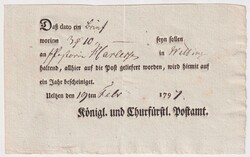 Daß dato ein Brief
worinn 39 10 seyn sollen
an in
haltend, allhier auf die Post geliefert worden, wird hiemit auf
ein Jahr bescheiniget.
Uelzen den 19ten Febr 1797.
Königl. und Churfürstl. Postamt.